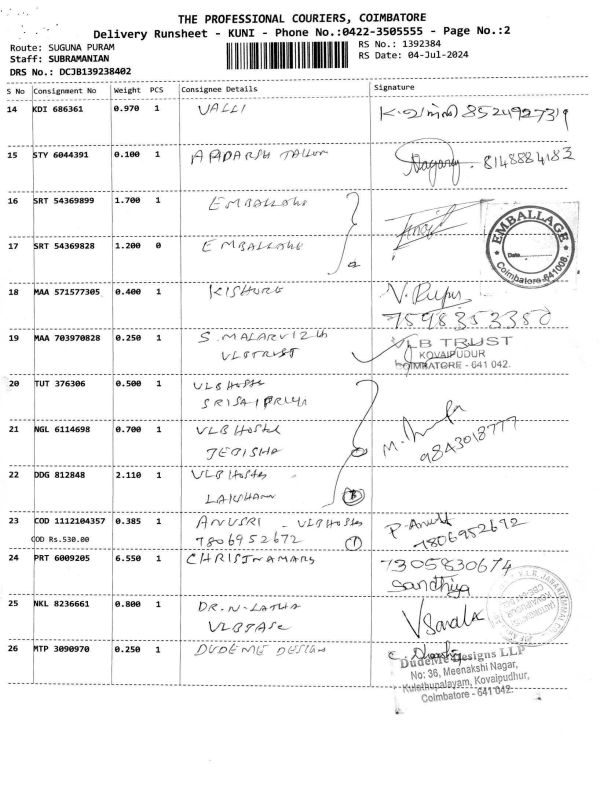 THE PROFESSIONAL COURIERS, COIMBATORE
Delivery Runsheet - KUNI - Phone No.:0422-3505555 - Page No.:2
Route: SUGUNA PURAM
RS No.: 1392384
Staff: SUBRAMANIAN
RS Date: 04-Jul-2024
DRS No.: DCJB139238402
S No Consignment No Weight PCS Consignee Details Signature
14 KDI 686361 0.970 1 VALLI 8524927319
15 STY 6044391 0.100 1 8148884183
16 SRT 54369899 1.700 1 EMBALLAGE
17 SRT 54369828 1.200 0 EMBALLAGE
EMBALLAGE
Date
Coimbatore-641008.
18 MAA 571577305 0.400 1 KISHORE
7598353350
19 MAA 703970828 0.250 1 S. MALARVIZH
VLB TRUST
VLB TRUST
KOVAIPUDUR
COIMBATORE - 641 042.
20 TUT 376306 0.500 1 VLB Hostel
SRISAIPRIYA
21 NGL 6114698 0.700 1 VLB Hostel
JEBISHA
9843018777
22 DDG 812848 2.110 1 VLB Hostel
23 COD 1112104357 0.385 1 ANUSRI - VLB Hostel
COD Rs.530.00 7806952672 1
7806952692
24 PRT 6009205 6.550 1 CHRISTINAMARY 7305830674
Sandhiya
25 NKL 8236661 0.800 1 DR. N. LATHA
26 MTP 3090970 0.250 1 DUDEME DESIGN
DudeMe Designs LLP
No: 36, Meenakshi Nagar,
Kulathupalayam, Kovaipudhur,
Coimbatore - 641 042.